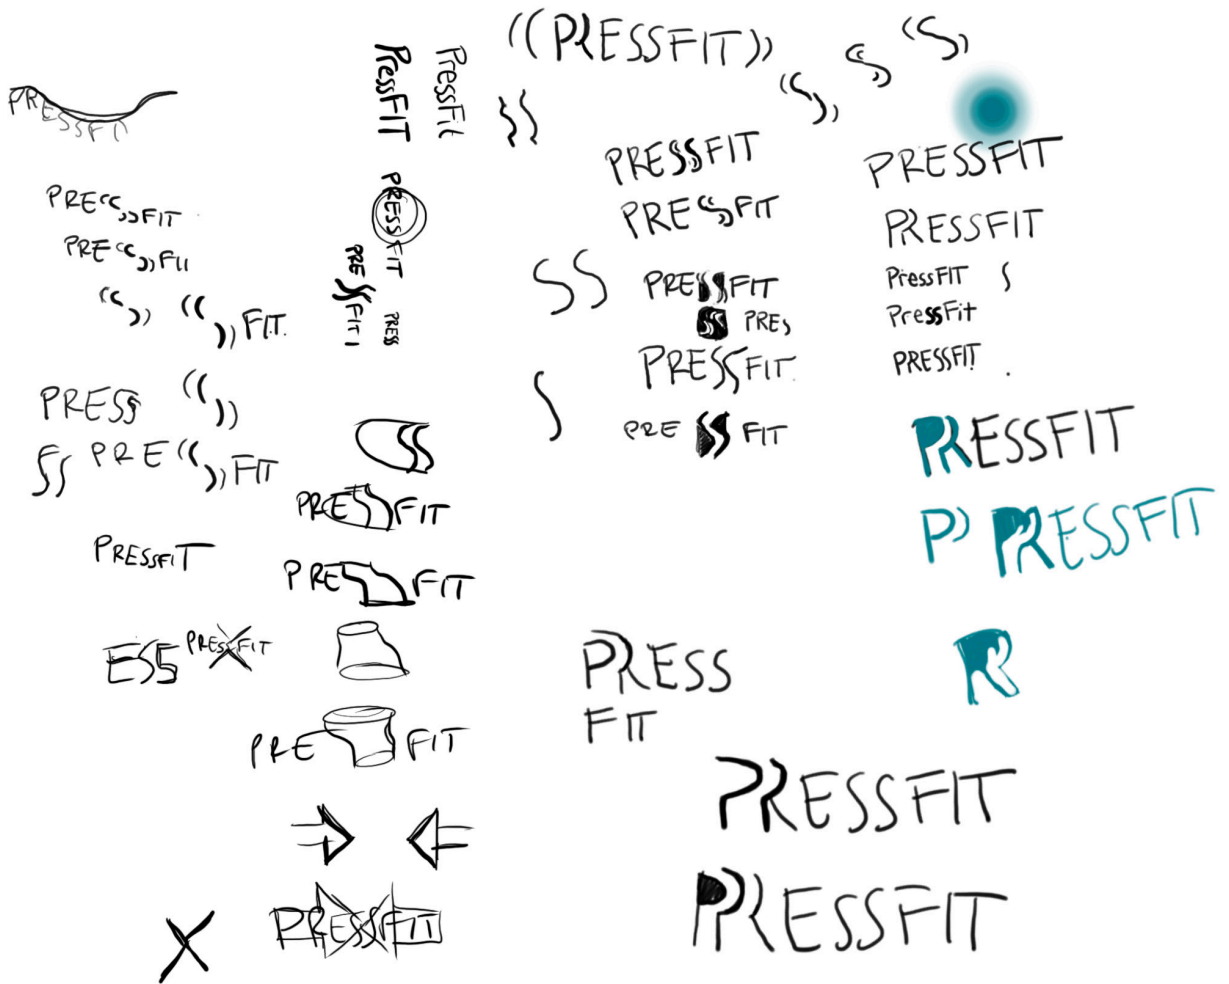 PRESSFIT
PressFIT
PressFit
PRESSFIT
PRESSFIT
PRESSFIT
PRESSFIT
PRE FIT
PRE FIT
FIT.
PRESS
PRE FIT
PRESSFIT
ESS
PRESSFIT
PRESSFIT
PRE SS FIT
PRESS
SS
PRE FIT
PRE FIT
PRE FIT
PRESSFIT
PRESSFIT
PRESFIT
SS
PRESSFIT
SS PRES
PRESSFIT
PRE SS FIT
PRESSFIT
PressFIT
PressFit
PRESSFIT
PRESSFIT
P PRESSFIT
R
PRESS
FIT
PRESSFIT
PRESSFIT